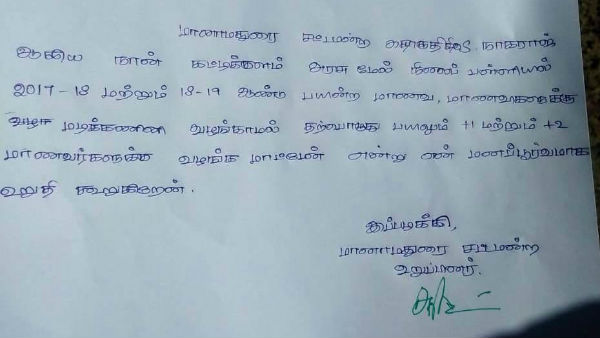 மானாமதுரை சட்டமன்ற தொகுதி S. நாகராஜ்
ஆகிய நான் அரசு மேல் நிலைப் பள்ளியில்
2017-18 மற்றும் 18-19 ஆண்டு பயின்ற மாணவ, மாணவிகளுக்கு
மடிக்கணினி வழங்காமல் தற்போது பயிலும் +1 மற்றும் +2
மாணவர்களுக்கு வழங்க மாட்டேன் என்று என் மனப்பூர்வமாக
உறுதி கூறுகிறேன்.
இப்படிக்கு,
மானாமதுரை சட்டமன்ற
உறுப்பினர்.